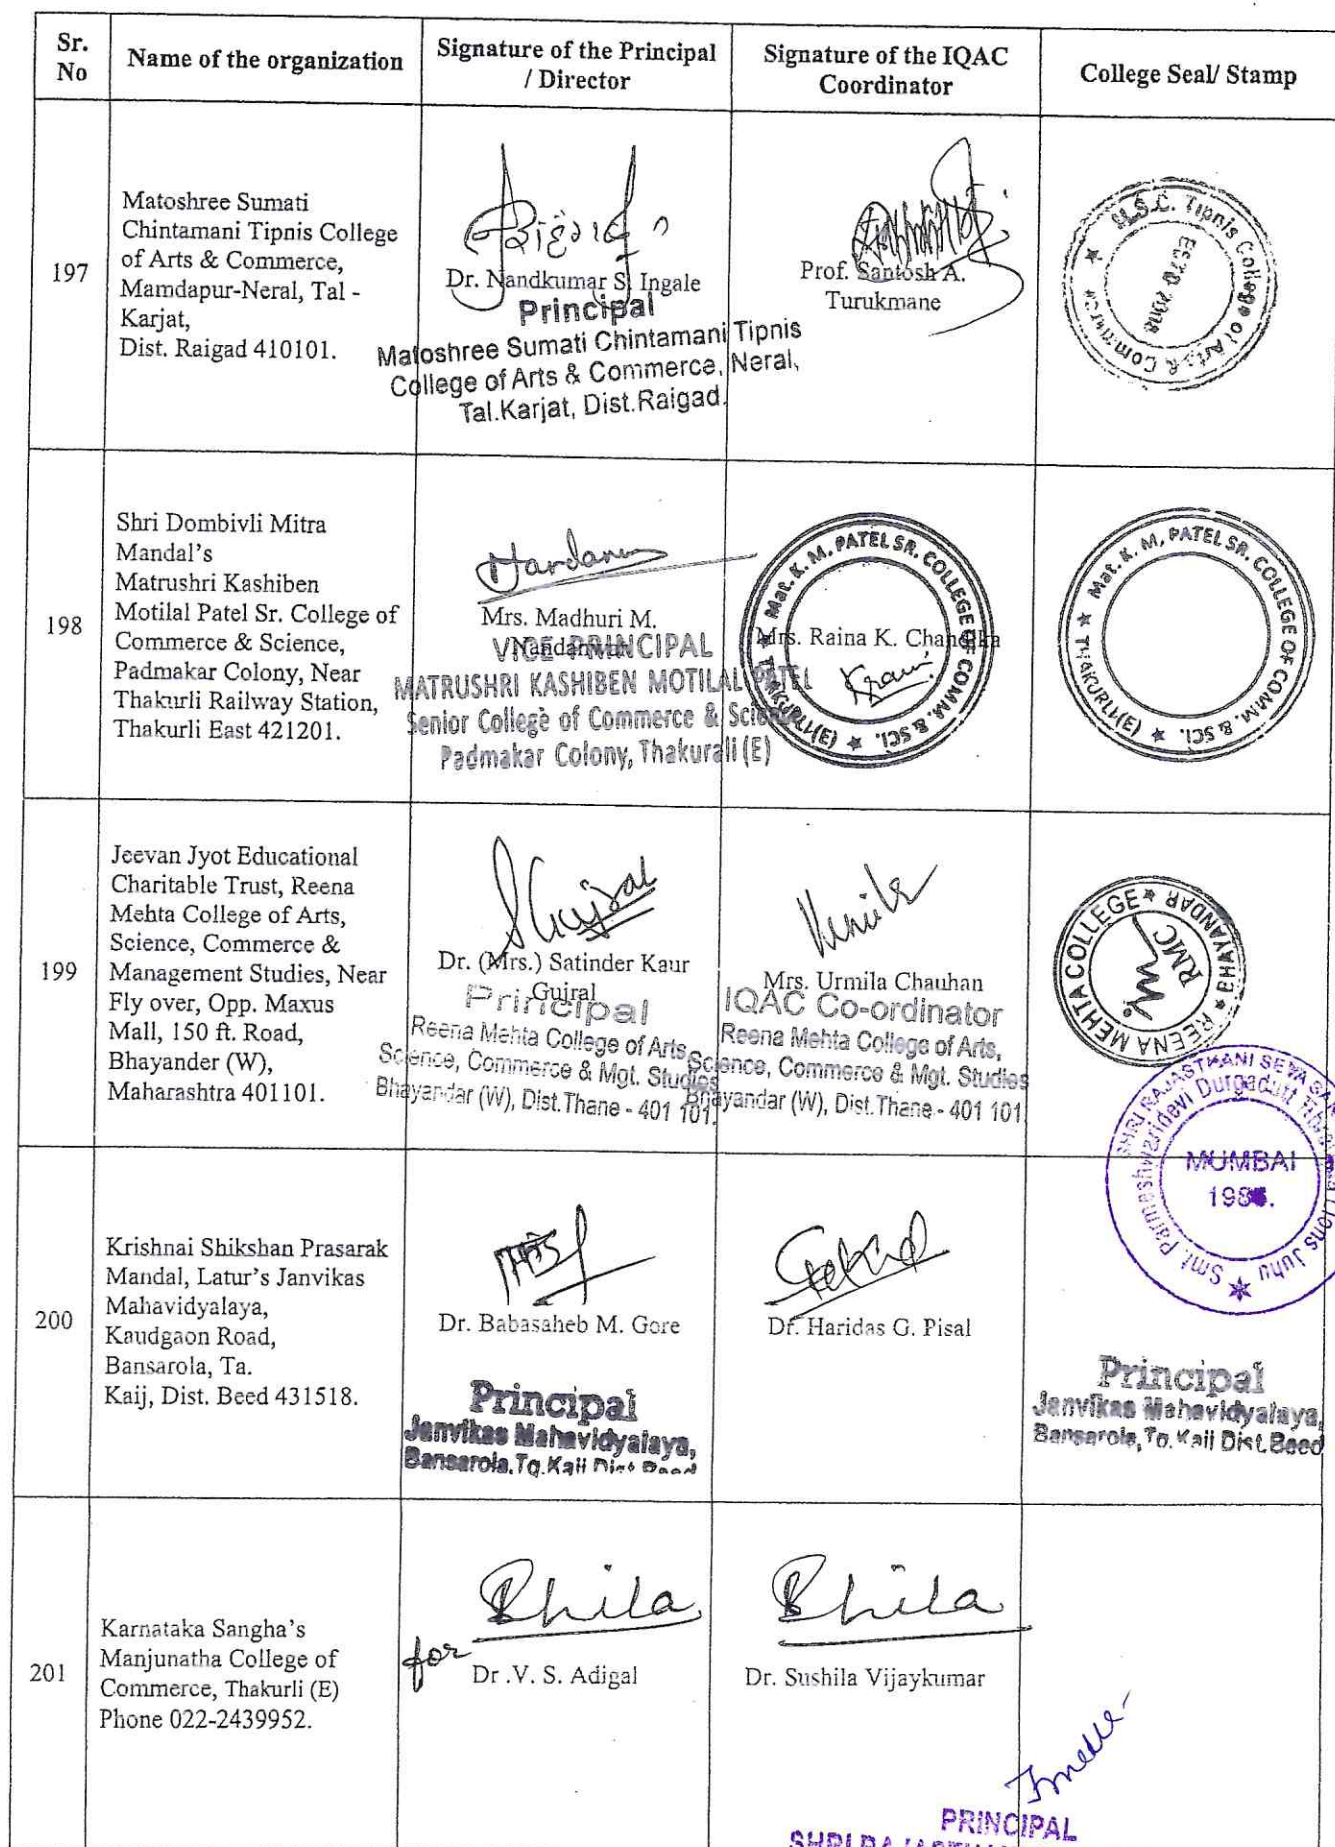 Sr. No
Name of the organization
Signature of the Principal / Director
Signature of the IQAC Coordinator
College Seal/ Stamp
197
Matoshree Sumati
Chintamani Tipnis College
of Arts & Commerce,
Mamdapur-Neral, Tal -
Karjat,
Dist. Raigad 410101.
Dr. Nandkumar S. Ingale
Principal
Matoshree Sumati Chintamani Tipnis
College of Arts & Commerce, Neral,
Tal.Karjat, Dist.Raigad.
Prof. Santosh A.
Turukmane
M.S.C. Tipnis College of Arts & Commerce
ESTD 2008
198
Shri Dombivli Mitra
Mandal's
Matrushri Kashiben
Motilal Patel Sr. College of
Commerce & Science,
Padmakar Colony, Near
Thakurli Railway Station,
Thakurli East 421201.
Mrs. Madhuri M.
Nandanwar
VICE-PRINCIPAL
MATRUSHRI KASHIBEN MOTILAL PATEL
Senior College of Commerce & Science
Padmakar Colony, Thakurali (E)
Mrs. Raina K. Chandka
Mat. K. M. PATEL SR. COLLEGE OF COMM. & SCI. THAKURLI(E)
Mat. K. M. PATEL SR. COLLEGE OF COMM. & SCI. THAKURLI(E)
199
Jeevan Jyot Educational
Charitable Trust, Reena
Mehta College of Arts,
Science, Commerce &
Management Studies, Near
Fly over, Opp. Maxus
Mall, 150 ft. Road,
Bhayander (W),
Maharashtra 401101.
SGujral
Dr. (Mrs.) Satinder Kaur
Gujral
Principal
Reena Mehta College of Arts,
Science, Commerce & Mgt. Studies
Bhayandar (W), Dist.Thane - 401 101.
Mrs. Urmila Chauhan
IQAC Co-ordinator
Reena Mehta College of Arts,
Science, Commerce & Mgt. Studies
Bhayandar (W), Dist.Thane - 401 101
REENA MEHTA COLLEGE BHAYANDAR
RMC
SHRI RAJASTHANI SEVA
Smt. Parmeshwaridevi Durgadutt
Juhu
MUMBAI
200
Krishnai Shikshan Prasarak
Mandal, Latur's Janvikas
Mahavidyalaya,
Kaudgaon Road,
Bansarola, Ta.
Kaij, Dist. Beed 431518.
Dr. Babasaheb M. Gore
Principal
Janvikas Mahavidyalaya,
Bansarola,Tq.Kaij Dist Beed
Dr. Haridas G. Pisal
Principal
Janvikas Mahavidyalaya,
Bansarola, Tq. Kaij Dist.Beed
201
Karnataka Sangha's
Manjunatha College of
Commerce, Thakurli (E)
Phone 022-2439952.
Bhila
for
Dr .V. S. Adigal
Bhila
Dr. Sushila Vijaykumar
PRINCIPAL